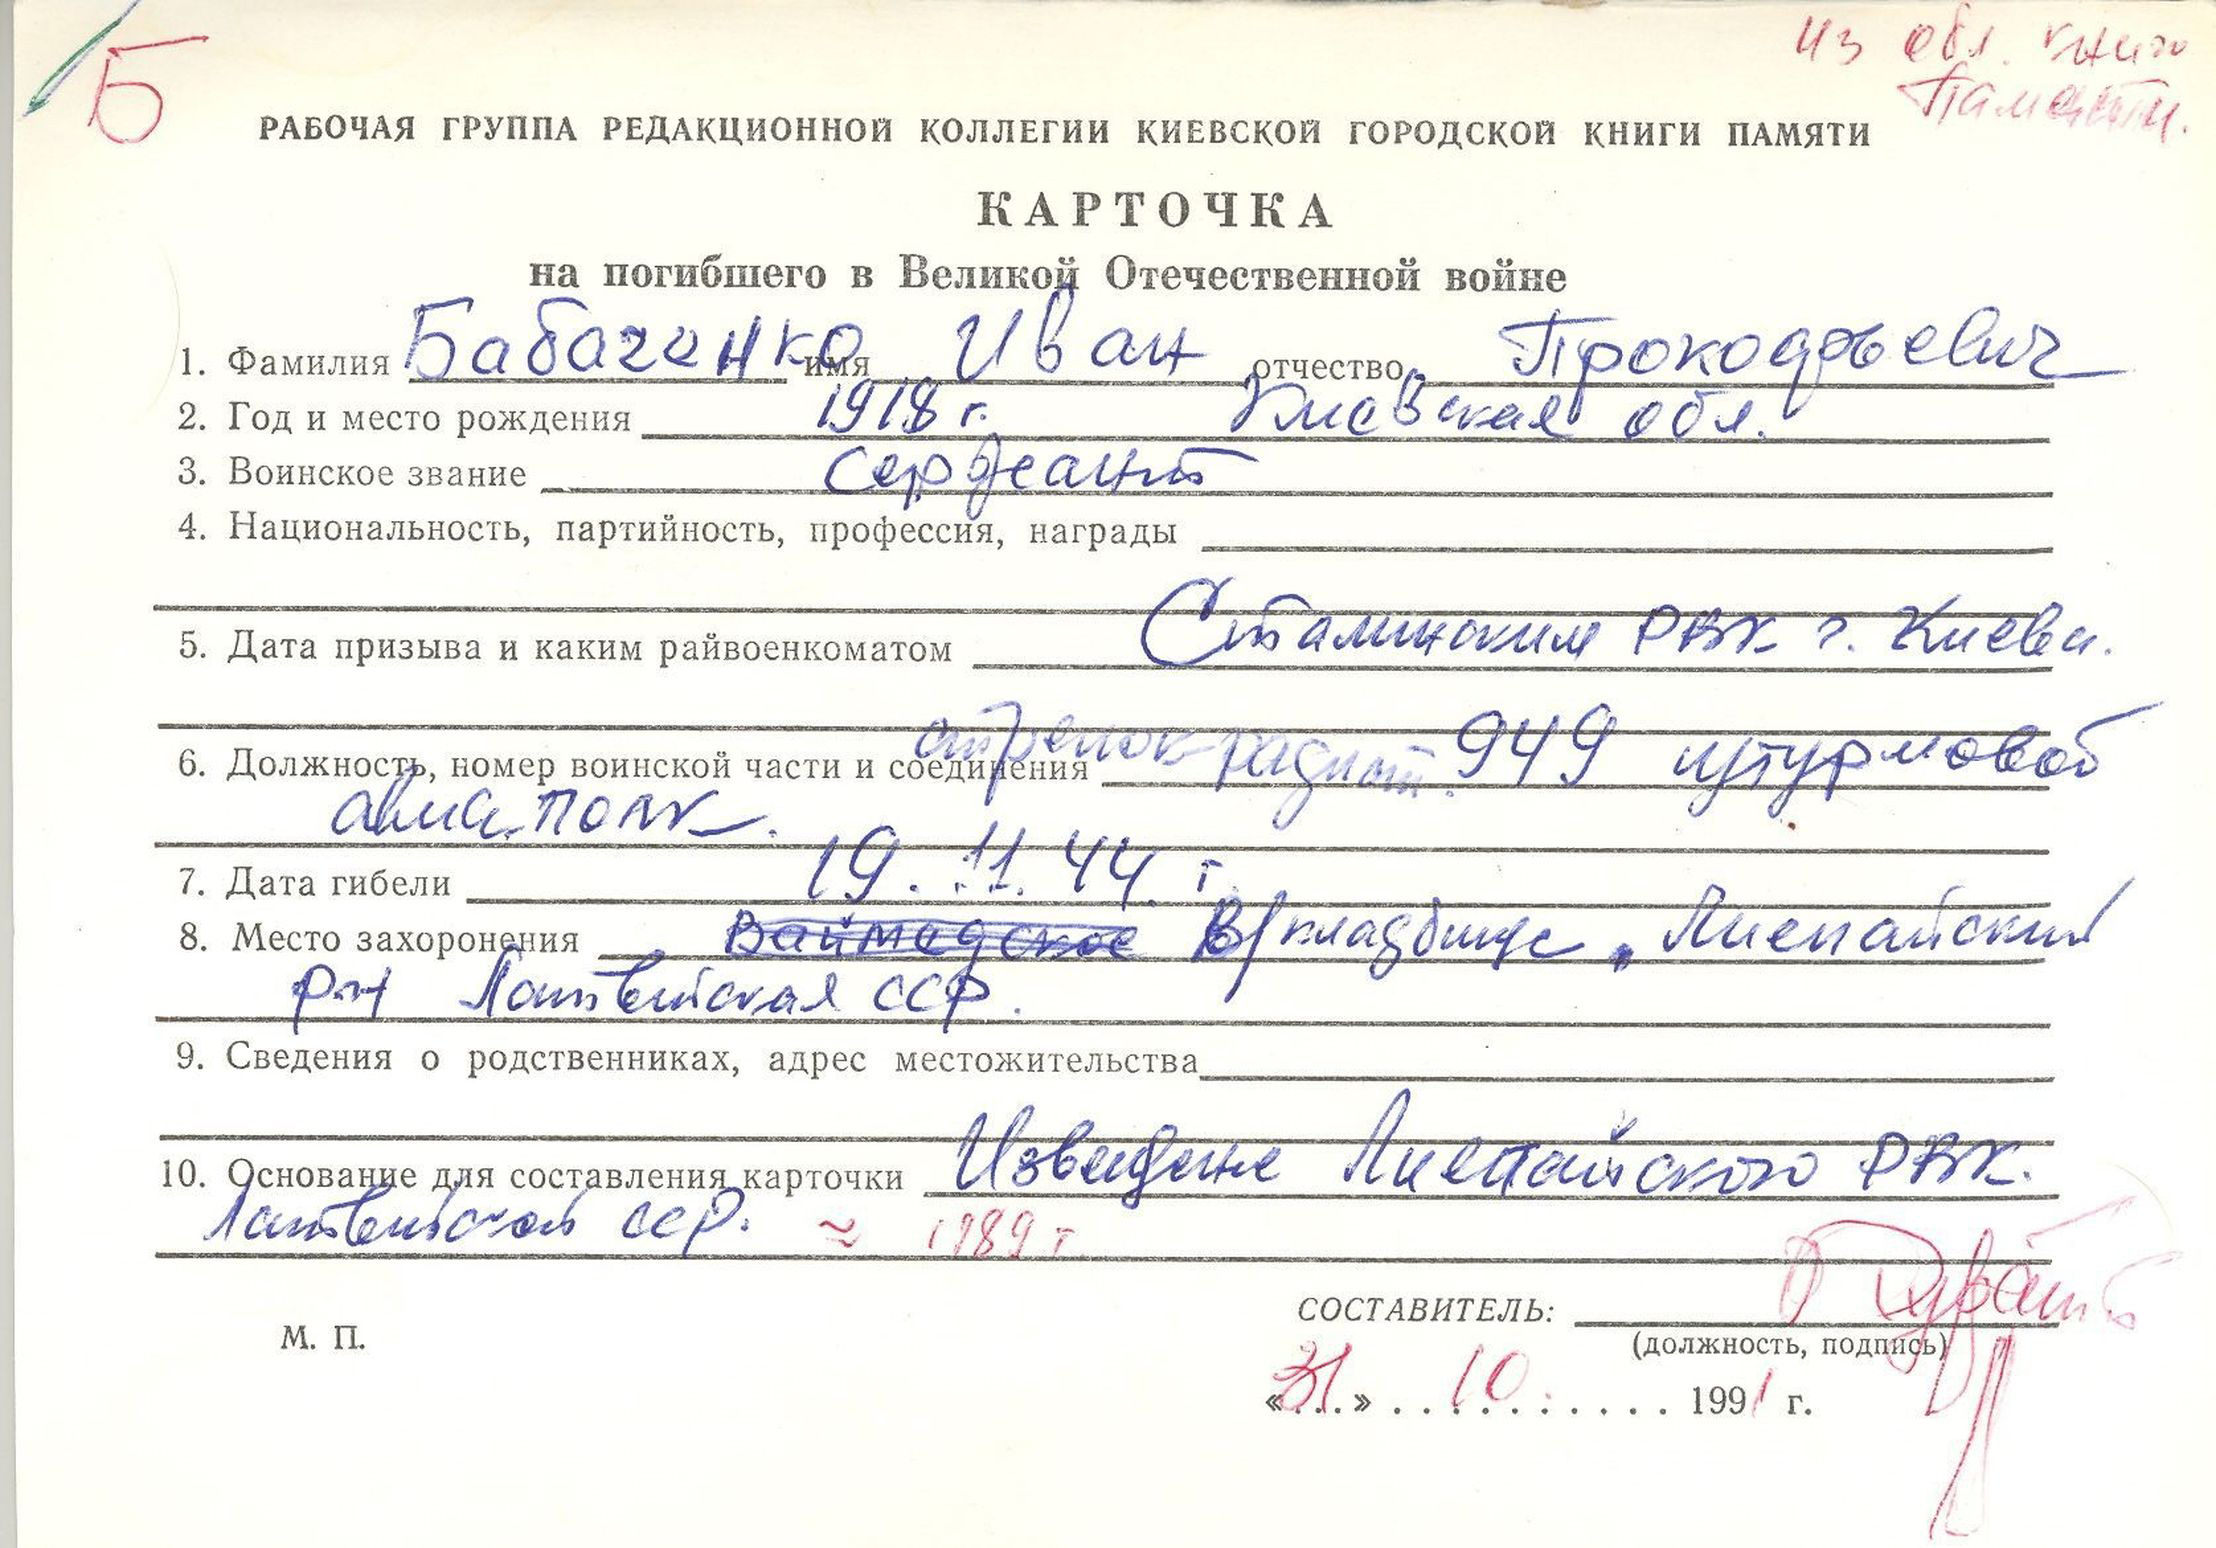 Б
из обл. книги
Памяти.
РАБОЧАЯ ГРУППА РЕДАКЦИОННОЙ КОЛЛЕГИИ КИЕВСКОЙ ГОРОДСКОЙ КНИГИ ПАМЯТИ
КАРТОЧКА
на погибшего в Великой Отечественной войне
1. Фамилия Бабаченко имя Иван отчество Прокофьевич
2. Год и место рождения 1918 г. Киевская обл.
3. Воинское звание сержант
4. Национальность, партийность, профессия, награды
5. Дата призыва и каким райвоенкоматом Сталинским РВК г. Киева.
6. Должность, номер воинской части и соединения стрелок-радист. 949 штурмовой
авиа.полк.
7. Дата гибели 19.11.44 г.
8. Место захоронения В/кладбище, Лиепайский
р-н Латвийская ССР.
9. Сведения о родственниках, адрес местожительства
10. Основание для составления карточки Извещение Лиепайского РВК.
Латвийской ССР. ≈ 1989 г
СОСТАВИТЕЛЬ:
М. П.
(должность, подпись)
«31» 10. 1991 г.